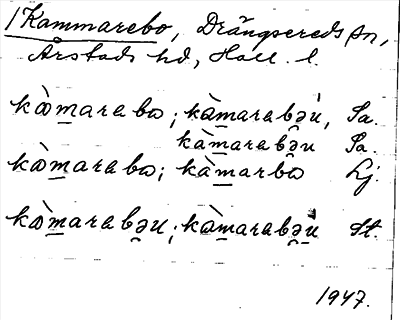 /Kammarebo, Drängsereds sn,
Årstads hd, Hall. l.
kàm̲araba; kàm̲arabə̯u̇, Sa.
kàm̲arabə̯u Sa.
kàm̲araba; kàm̲arba Lj.
kàm̲arabə̯u; kàm̲arabə̯u̇ St.
1947.